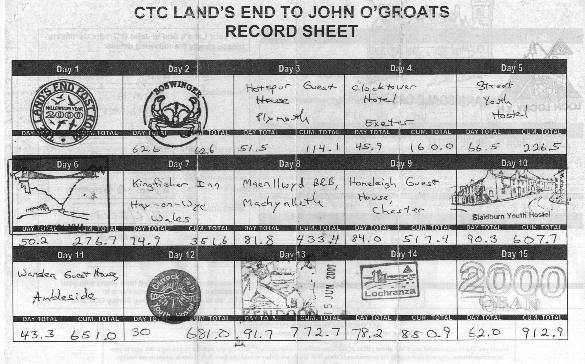 CTC LAND'S END TO JOHN O'GROATS
RECORD SHEET
Day 1
Day 2
Day 3
Day 4
Day 5
LAND'S END
MILLENNIUM YEAR
2000
BOSWINGER
Hotspur Guest
House
Plymouth
Clocktower
Hotel
Exeter
Street
Youth
Hostel
DAY TOTAL CUM. TOTAL
DAY TOTAL CUM. TOTAL
DAY TOTAL CUM. TOTAL
DAY TOTAL CUM. TOTAL
DAY TOTAL CUM. TOTAL
62.6 62.6
51.5 114.1
45.9 160.0
66.5 226.5
Day 6
Day 7
Day 8
Day 9
Day 10
Kingfisher Inn
Hay-on-Wye
Wales
Maenllwyd B&B,
Machynlleth
Guest
House,
Chester
Slaidburn Youth Hostel
DAY TOTAL
DAY TOTAL CUM. TOTAL
DAY TOTAL CUM. TOTAL
DAY TOTAL CUM. TOTAL
DAY TOTAL CUM. TOTAL
50.2 276.7
74.9 351.6
81.8 433.4
84.0 517.4
90.3 607.7
Day 11
Day 12
Day 13
Day 14
Day 15
Guest House,
Ambleside
5 JUN 2000
KENDOON
Lochranza
2000
OBAN
DAY TOTAL CUM. TOTAL
DAY TOTAL CUM. TOTAL
CUM. TOTAL
DAY TOTAL CUM. TOTAL
DAY TOTAL CUM. TOTAL
43.3 651.0
30 681.0
91.7 772.7
78.2 850.9
62.0 912.9